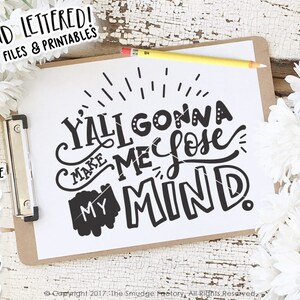 D LETTERED!
FILES & PRINTABLES
Y'ALL GONNA
MAKE ME Lose
MY MIND.
© Copyright 2017. The Smudge Factory. All Rights Reserved.